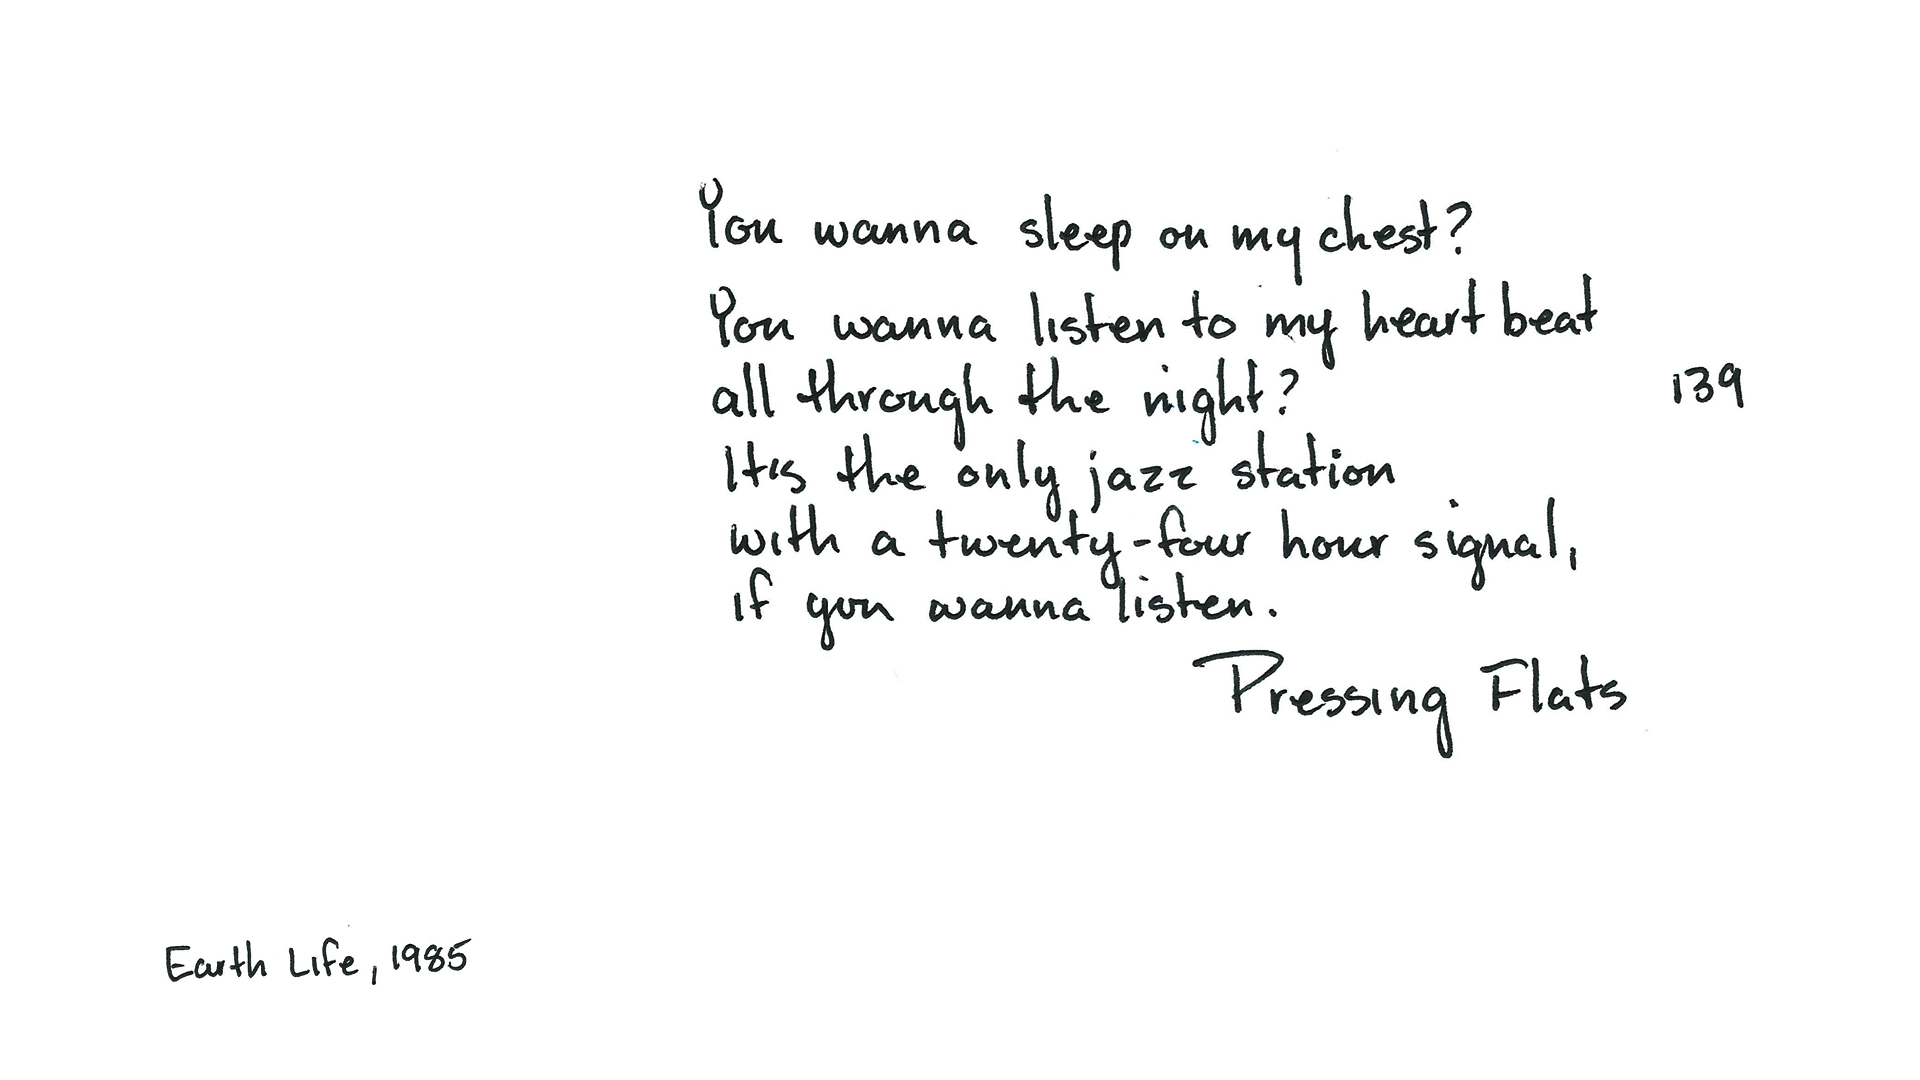 You wanna sleep on my chest?
You wanna listen to my heart beat
all through the night?
139
It's the only jazz station
with a twenty-four hour signal,
if you wanna listen.
Pressing Flats
Earth Life, 1985